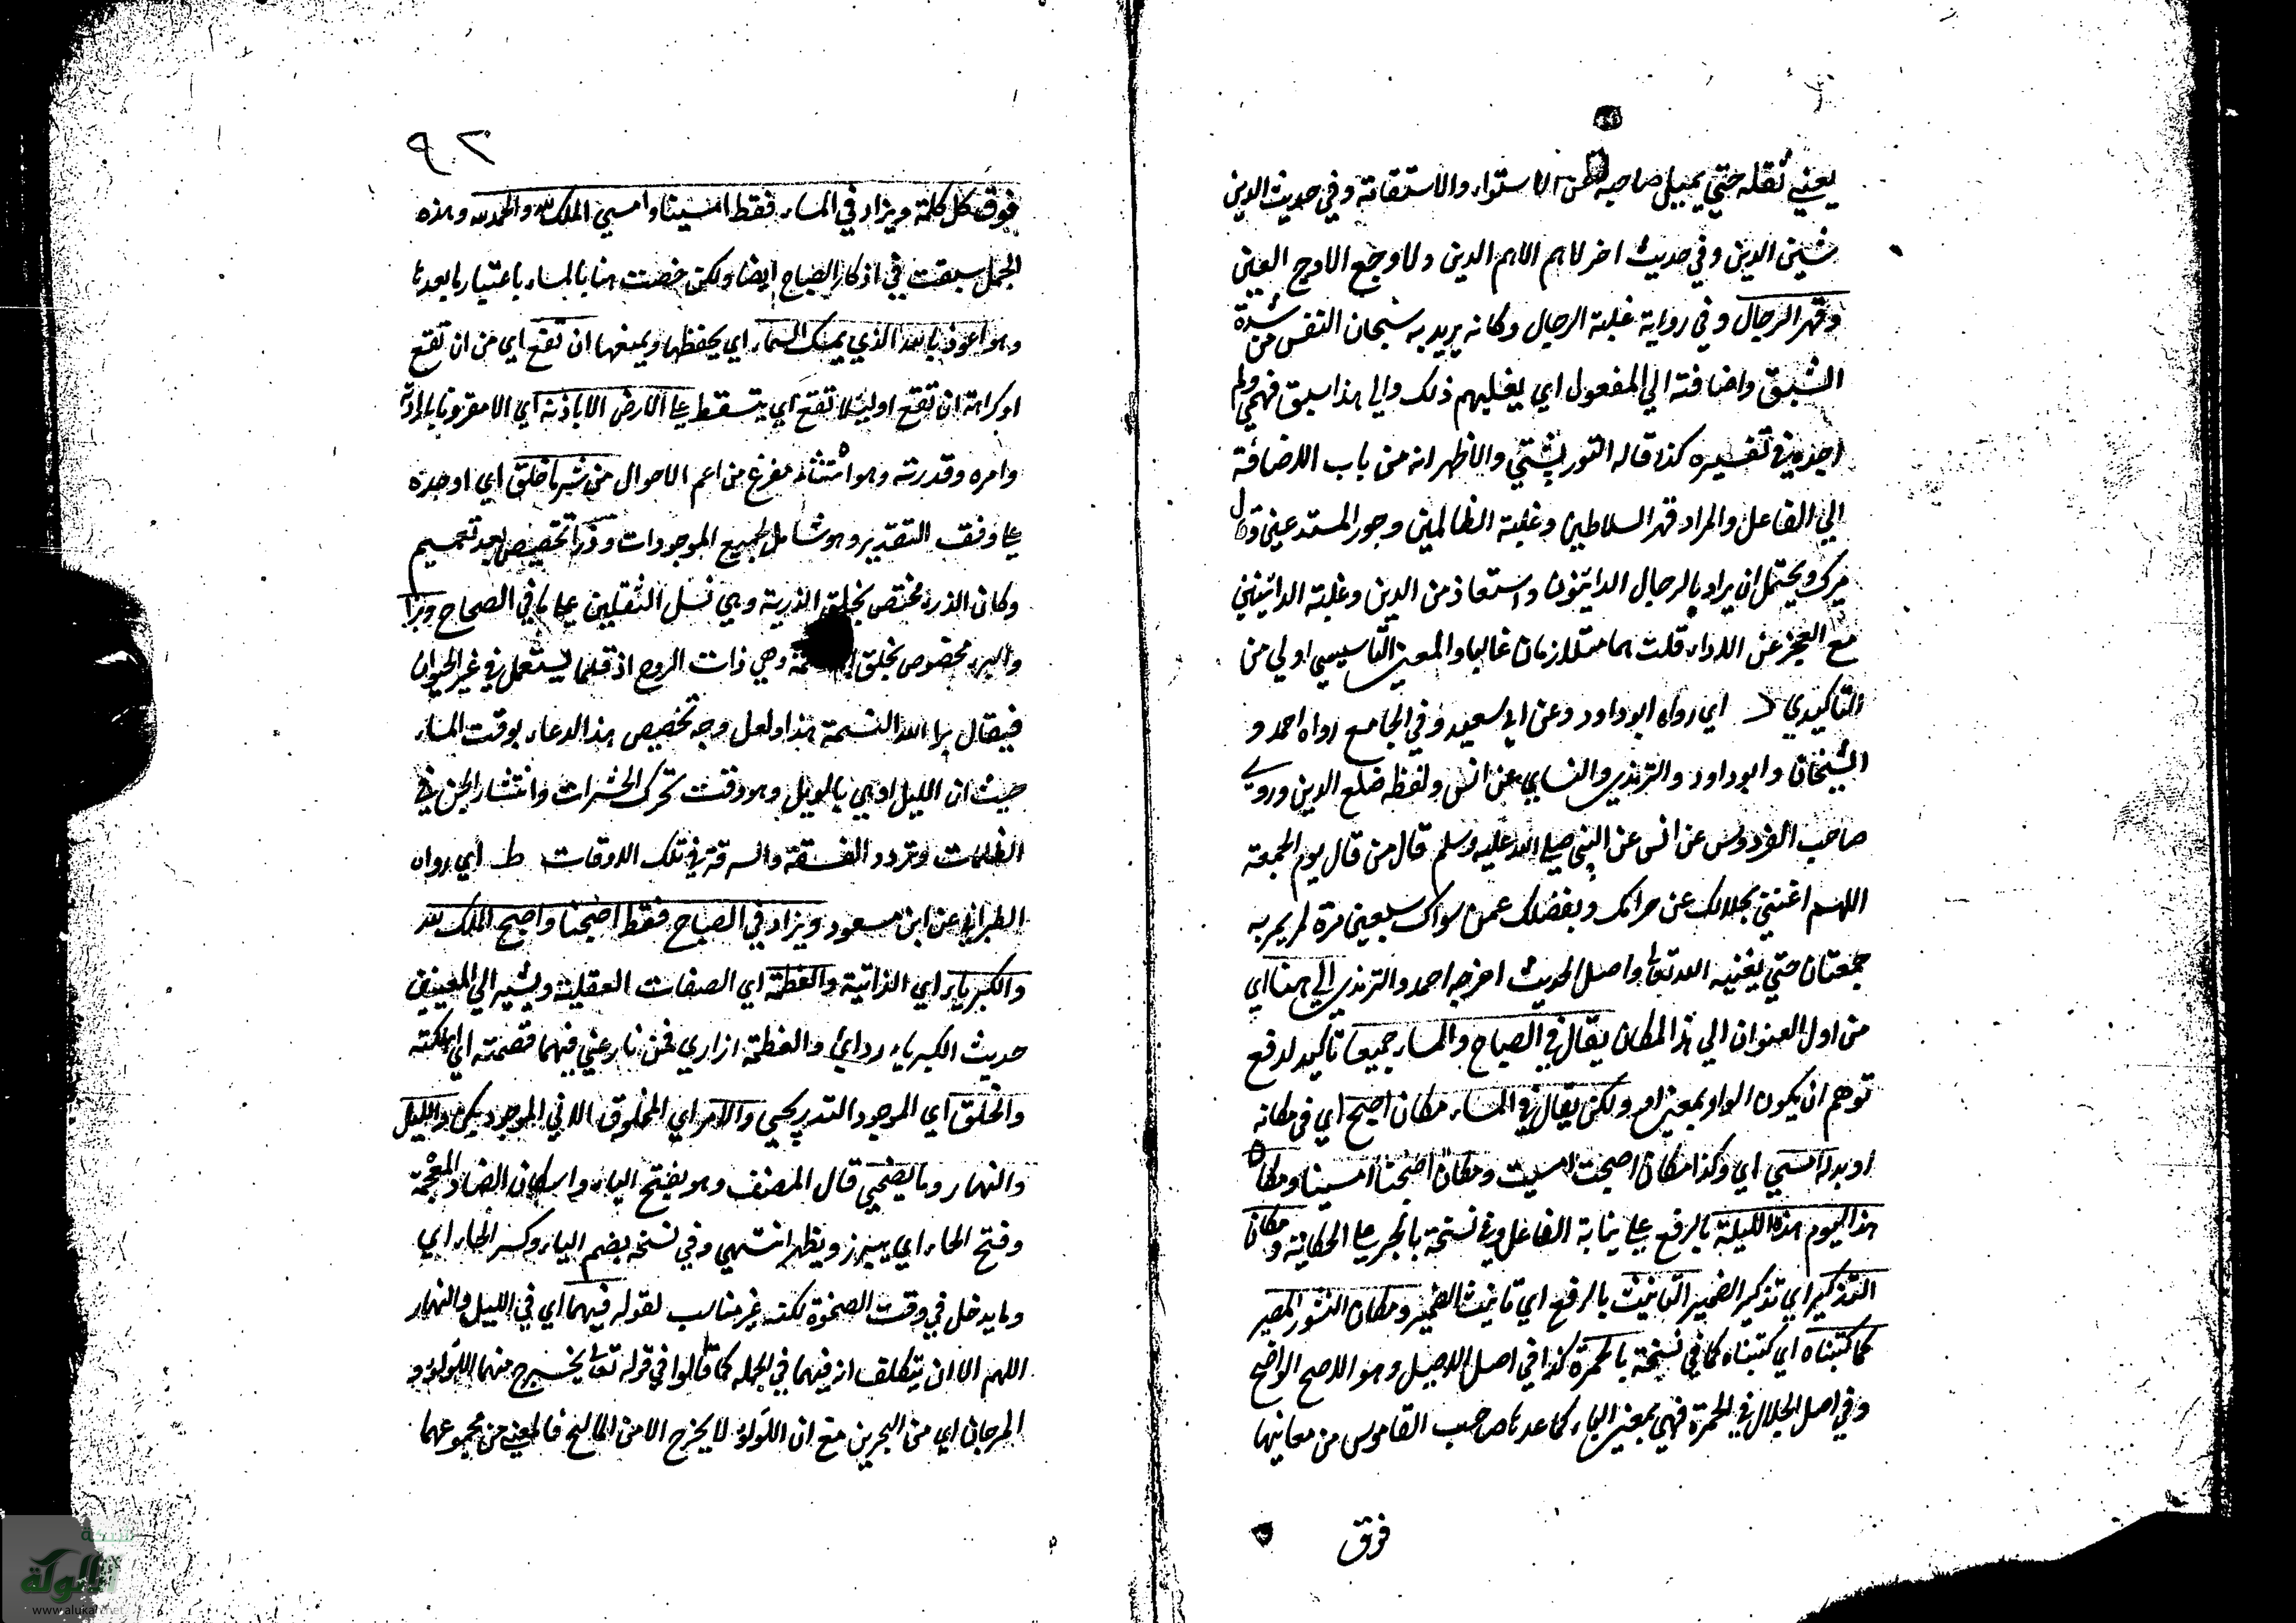 يعني ثقله حتي يميل صاحبه عن الاستواء والاستقامة وفي حديث الدين
شين الدين وفي حديث اخر لا هم الا هم الدين ولا وجع الا وجع العين
وقهر الرجال وفي رواية غلبة الرجال وكانه يريد به هيجان النفس من شدة
الشبق واضافته الي المفعول اي يغلبهم ذلك والي هذا سبق فهمي ولم
اجده في تفسيره كذا قاله التوربشتي والاظهر انه من باب الاضافة
الي الفاعل والمراد قهر السلاطين وغلبة الظالمين وجور المستدعين وقال
ميرك ويحتمل ان يراد بالرجال الدائنون واستعاذ من الدين وغلبة الدائنين
مع العجز عن الاداء قلت هما متلازمان غالبا والمعني التاسيسي اولي من
التاكيدي د اي رواه ابو داود وعن ابي سعيد وفي الجامع رواه احمد و
الشيخان وابو داود والترمذي والنسايي عن انس ولفظه ضلع الدين وروي
صاحب الفردوس عن انس عن النبي صلي الله عليه وسلم قال من قال يوم الجمعة
اللهم اغنني بحلالك عن حرامك وبفضلك عمن سواك سبعين مرة لم يمر به
جمعتان حتي يغنيه الله تعالي واصل الحديث اخرجه احمد والترمذي الي هنا اي
من اول العنوان الي هذا المكان يقال في الصباح والمساء جميعا تاكيد لدفع
توهم ان يكون الواو بمعني او ولكن يقال في المساء مكان اصبح اي في مكانه
او بدله امسي اي وكذا مكان اصبحت امسيت ومكان اصبحنا امسينا ومكان
هذا اليوم هذه الليلة بالرفع علي نيابة الفاعل وفي نسخة بالجر علي الحكاية ومكان
التذكير اي تذكير الضمير التانيث بالرفع اي تانيث الضمير ومكان النشور المصير
كما كتبناه اي كتبناه كما في نسخة بالحمرة كذا في اصل الاصيل وهو الاصح الواضح
وفي اصل الجلال في الحمرة فهي بمعني الباء كما عده صاحب القاموس من معانيها
فوق
٩٠٢
فوق كل كلمة ويزاد في المساء فقط امسينا وامسي الملك لله والحمد لله وهذه
الجمل سبقت في اذكار الصباح ايضا ولكن خصت هنا بالمساء باعتبار ما بعدها
وهو اعوذ بالله الذي يمسك السماء اي يحفظها ويمنعها ان تقع اي من ان تقع
او كراهة ان تقع او لئلا تقع اي يتسقط علي الارض الا باذنه اي الا مقرونا بارادته
وامره وقدرته وهو استثناء مفرغ من اعم الاحوال من شر ما خلق اي اوجده
علي وفق التقدير وهو شامل لجميع الموجودات وذرا تخصيص بعد تعميم
وكان الذرء مختص بخلق الذرية وهي نسل الثقلين علي ما في الصحاح وبرا
والبرء مخصوص بخلق وهي ذات الروح اذ قلما يستعمل في غير الحيوان
فيقال برا الله النسمة هذا ولعل وجه تخصيص هذا الدعاء بوقت المساء
حيث ان الليل اوهي بالويل وهو وقت تحرك الحشرات وانتشار الجن في
الظلمات وتردد الفسقة والسرقة في تلك الاوقات ط اي رواه
الطبراني عن ابن مسعود ويزاد في الصباح فقط اصبحنا واصبح الملك لله
والكبرياء اي الذاتية والعظمة اي الصفات العقلية ويشير الي المعنيين
حديث الكبرياء ردائي والعظمة ازاري فمن نازعني فيهما قصمته اي اهلكته
والخلق اي الموجود التدريجي والامر اي المخلوق الاني الموجود بكن والليل
والنهار وما يضحي قال المصنف وهو بفتح الياء واسكان الضاد المعجمة
وفتح الحاء اي يبرز ويظهر انتهي وفي نسخة بضم الياء وكسر الحاء اي
وما يدخل في وقت الضحوة لكنه غير مناسب لقوله فيهما اي في الليل والنهار
اللهم الا ان يتكلف انه فيهما في الجملة كما قالوا في قوله تعالي يخرج منهما اللؤلؤ و
المرجان اي من البحرين مع ان اللؤلؤ لا يخرج الا من المالح فالمعني من مجموعهما
الألوكة
www.alukah.net